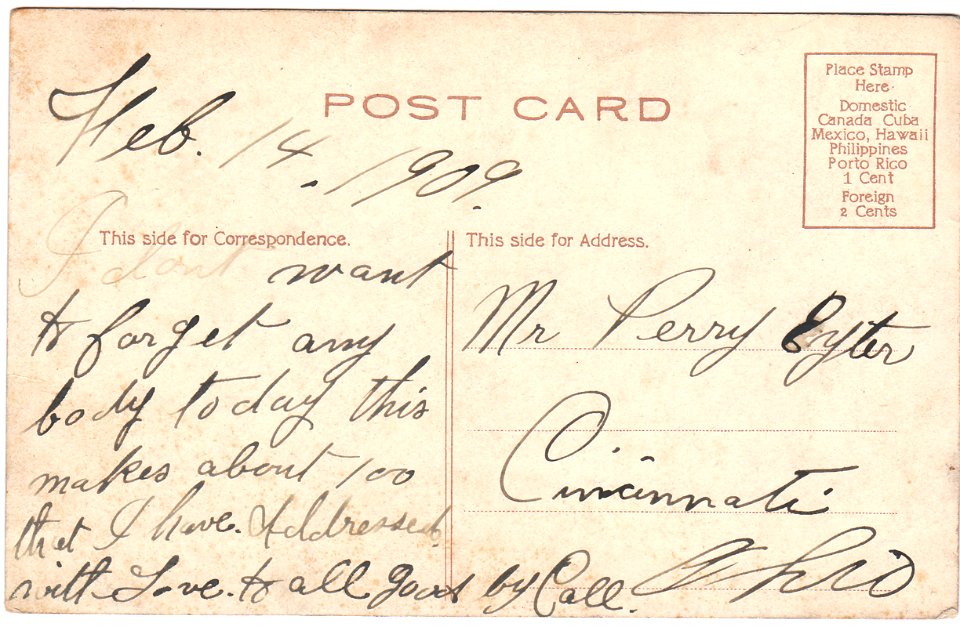 POST CARD
Place Stamp
Here
Domestic
Canada Cuba
Mexico, Hawaii
Philippines
Porto Rico
1 Cent
Foreign
2 Cents
Feb. 14. 1909.
This side for Correspondence.
I dont want
to forget any
body today this
makes about 100
that I have Addressed.
with Love to all good by Call.
This side for Address.
Mr Perry Eyter
Cincinnati
Ohio